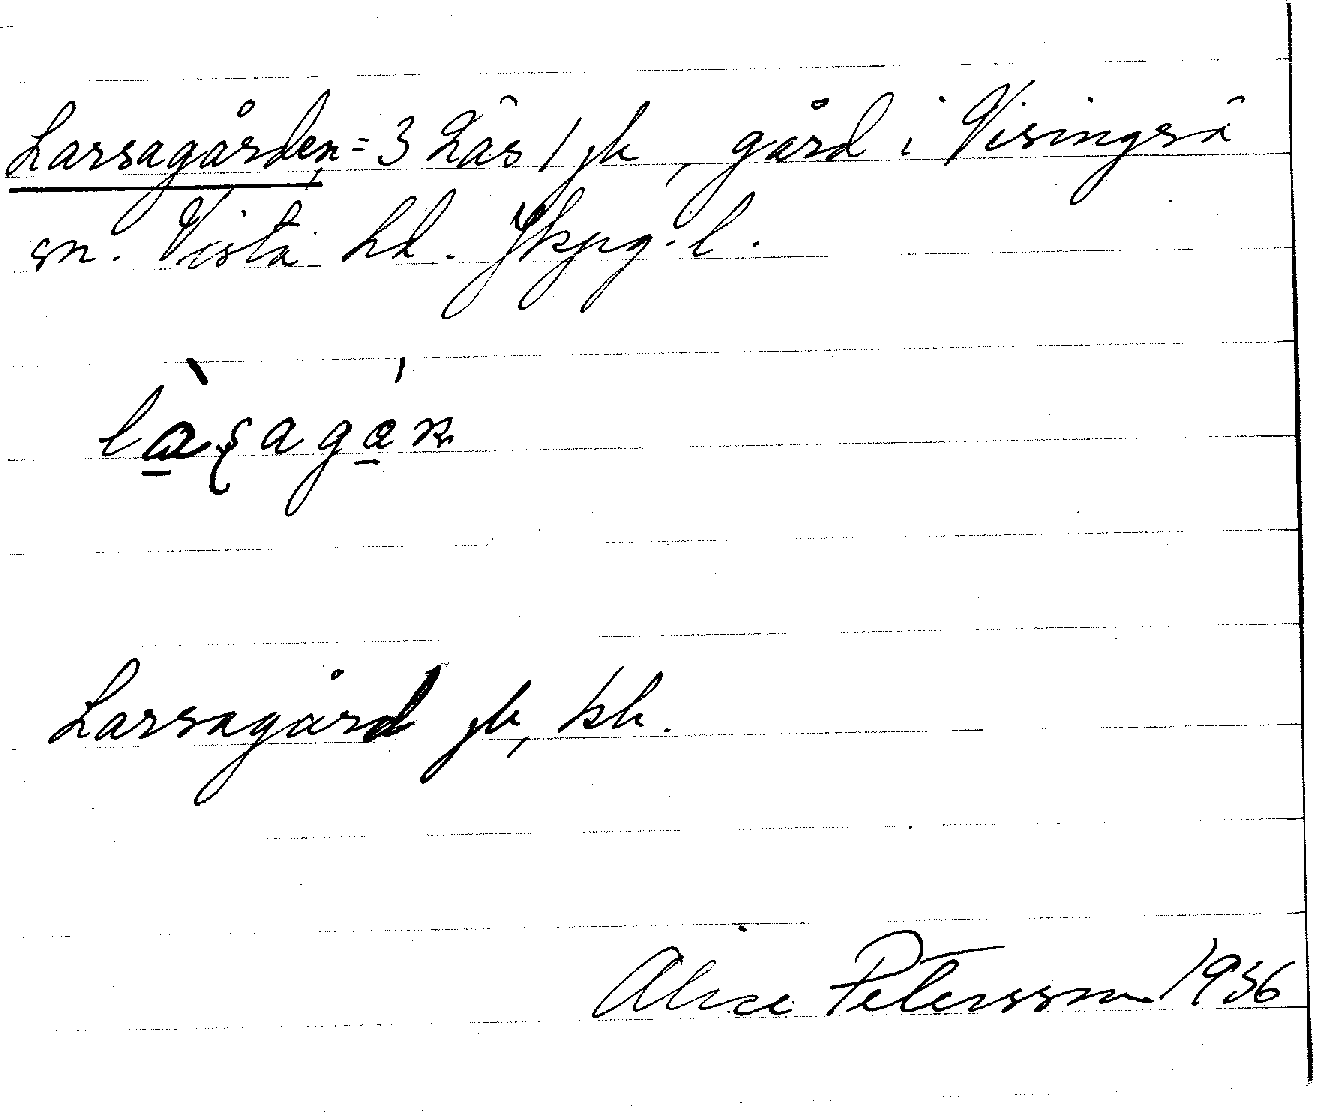 Larsagården = 3 Lās 1 jb, gård i Visingsö
sn. Vista hd. Jkpg. l.
Larsagård jb, kb.
Alice Petersson 1936